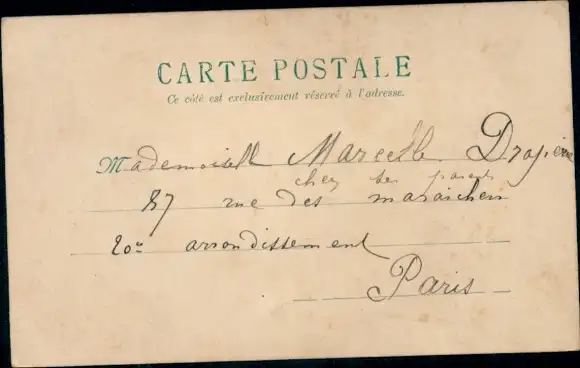 CARTE POSTALE
Ce côté est exclusivement réservé à l'adresse.
Mademoiselle Marcelle Drapier
chez ses parents
87 rue des maraichers
20e arrondissement
Paris